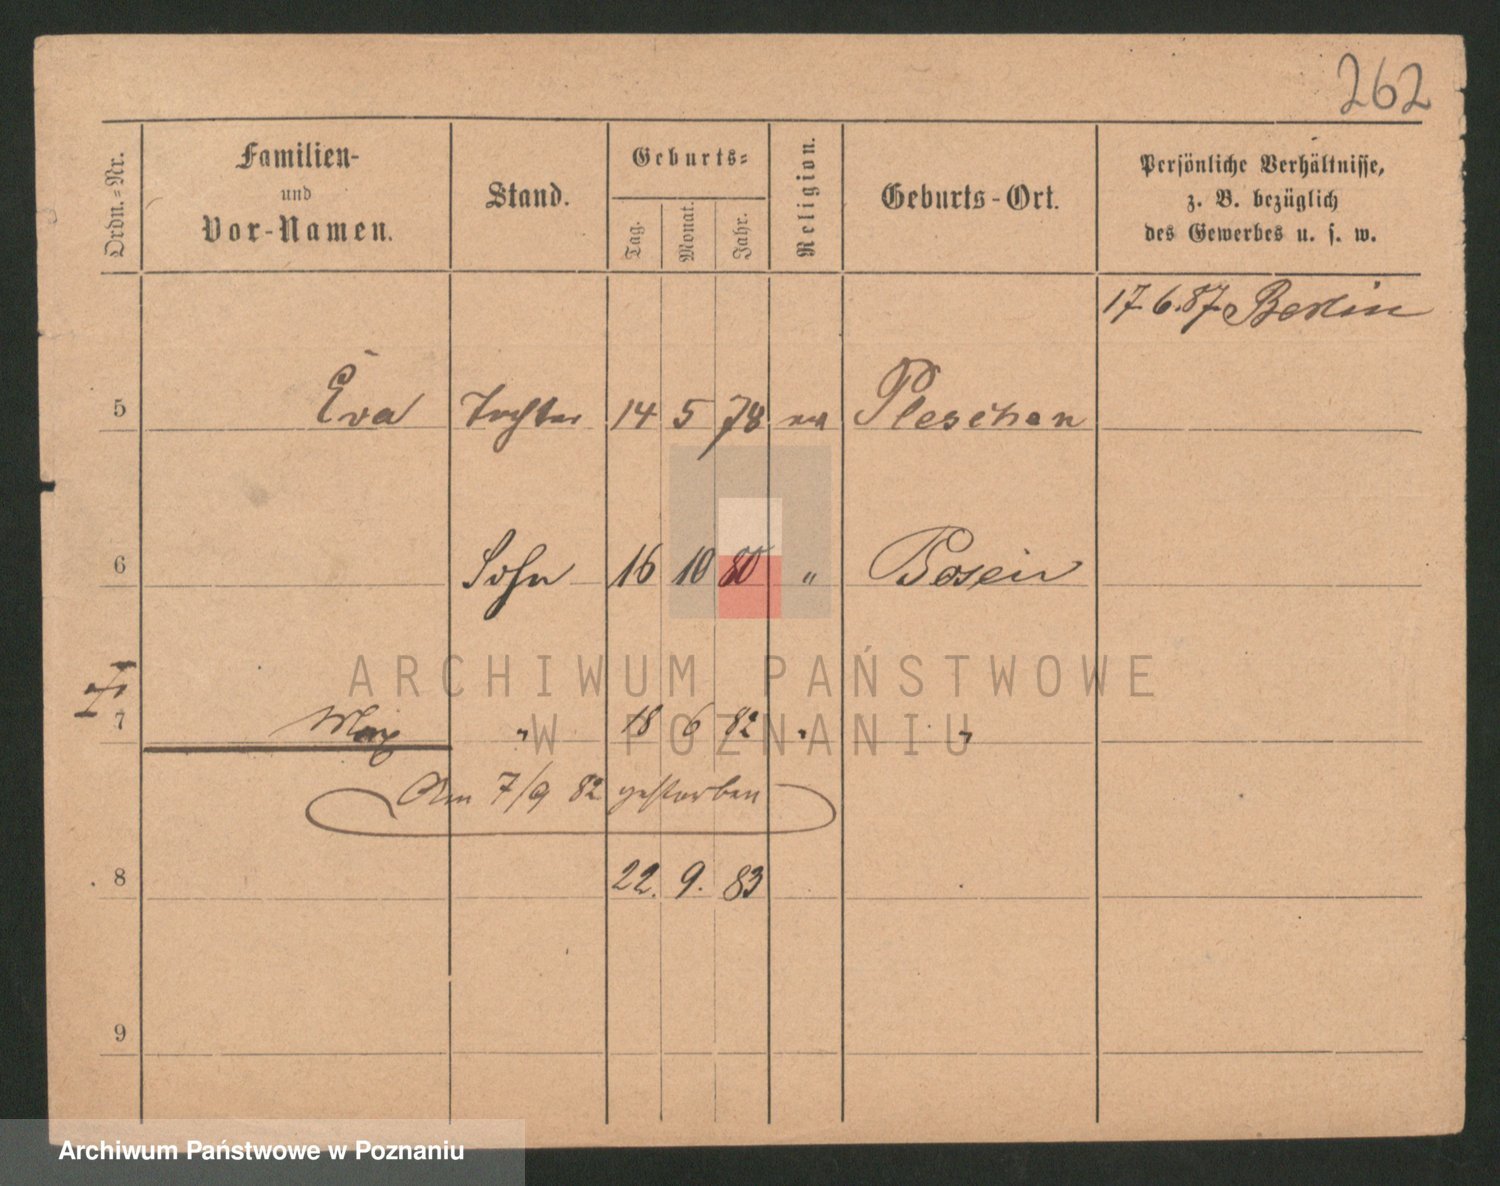 262
Ordn.-Nr. Familien- und Vor-Namen. Stand. Geburts- Tag. Monat. Jahr. Religion. Geburts-Ort. Persönliche Verhältnisse, z. B. bezüglich des Gewerbes u. s. w.
17.6.87 Berlin
5 Eva Tochter 14 5 78 Pleschen
6 Sohn 16 10 80 " Posen
7 Max " 18 6 82 " "
Am 7/9 82 gestorben
8 22. 9. 83
9
ARCHIWUM PAŃSTWOWE
W POZNANIU
Archiwum Państwowe w Poznaniu